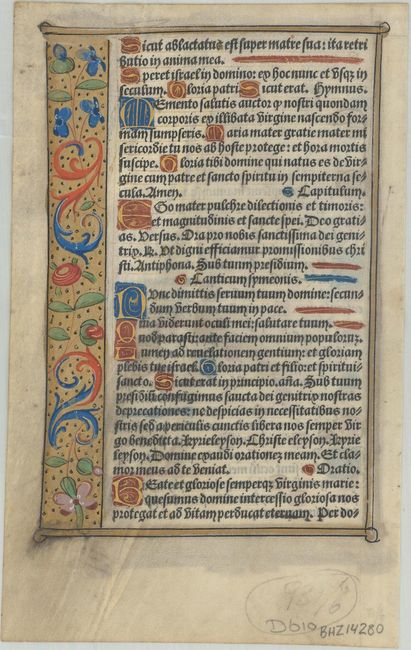 Sicut ablactatus est super matre sua: ita retri
butio in anima mea.
Speret israel in domino: ex hoc nunc et vsqz in
seculum. Gloria patri Sicut erat. Hymnus.
Memento salutis auctor q nostri quondam
corporis ex illibata virgine nascendo for-
mam sumpseris. Maria mater gratie mater mi
sericordie tu nos ab hoste protege: et hora mortis
suscipe. Gloria tibi domine qui natus es de vir-
gine cum patre et sancto spiritu in sempiterna se-
cula. Amen. Capitulum.
Ego mater pulchre dilectionis et timoris:
et magnitudinis et sancte spei. Deo grati-
as. Versus. Ora pro nobis sanctissima dei geni-
trix. R. Vt digni efficiamur promissionibus chri
sti. Antiphona. Sub tuum presidium.
Canticum symeonis.
Nunc dimittis seruum tuum domine: secun-
dum verbum tuum in pace.
Quia viderunt oculi mei: salutare tuum.
Quod parasti: ante faciem omnium populorum.
Lumen ad reuelationem gentium: et gloriam
plebis tue israel. Gloria patri et filio: et spiritui-
sancto. Sicut erat in principio. aña. Sub tuum
presidiu confugimus sancta dei genitrix nostras
deprecationes: ne despicias in necessitatibus no-
stris sed a periculis cunctis libera nos semper vir
go benedicta. Kyrieleyson. Christe eleyson. Kyrie
leyson. Domine exaudi orationez meam. Et cla-
mor meus ad te veniat. Oratio.
Beate et gloriose semperqz virginis marie:
quesumus domine intercessio gloriosa nos
protegat et ad vitam perducat eternam. Per do-
D610 BHZ14280